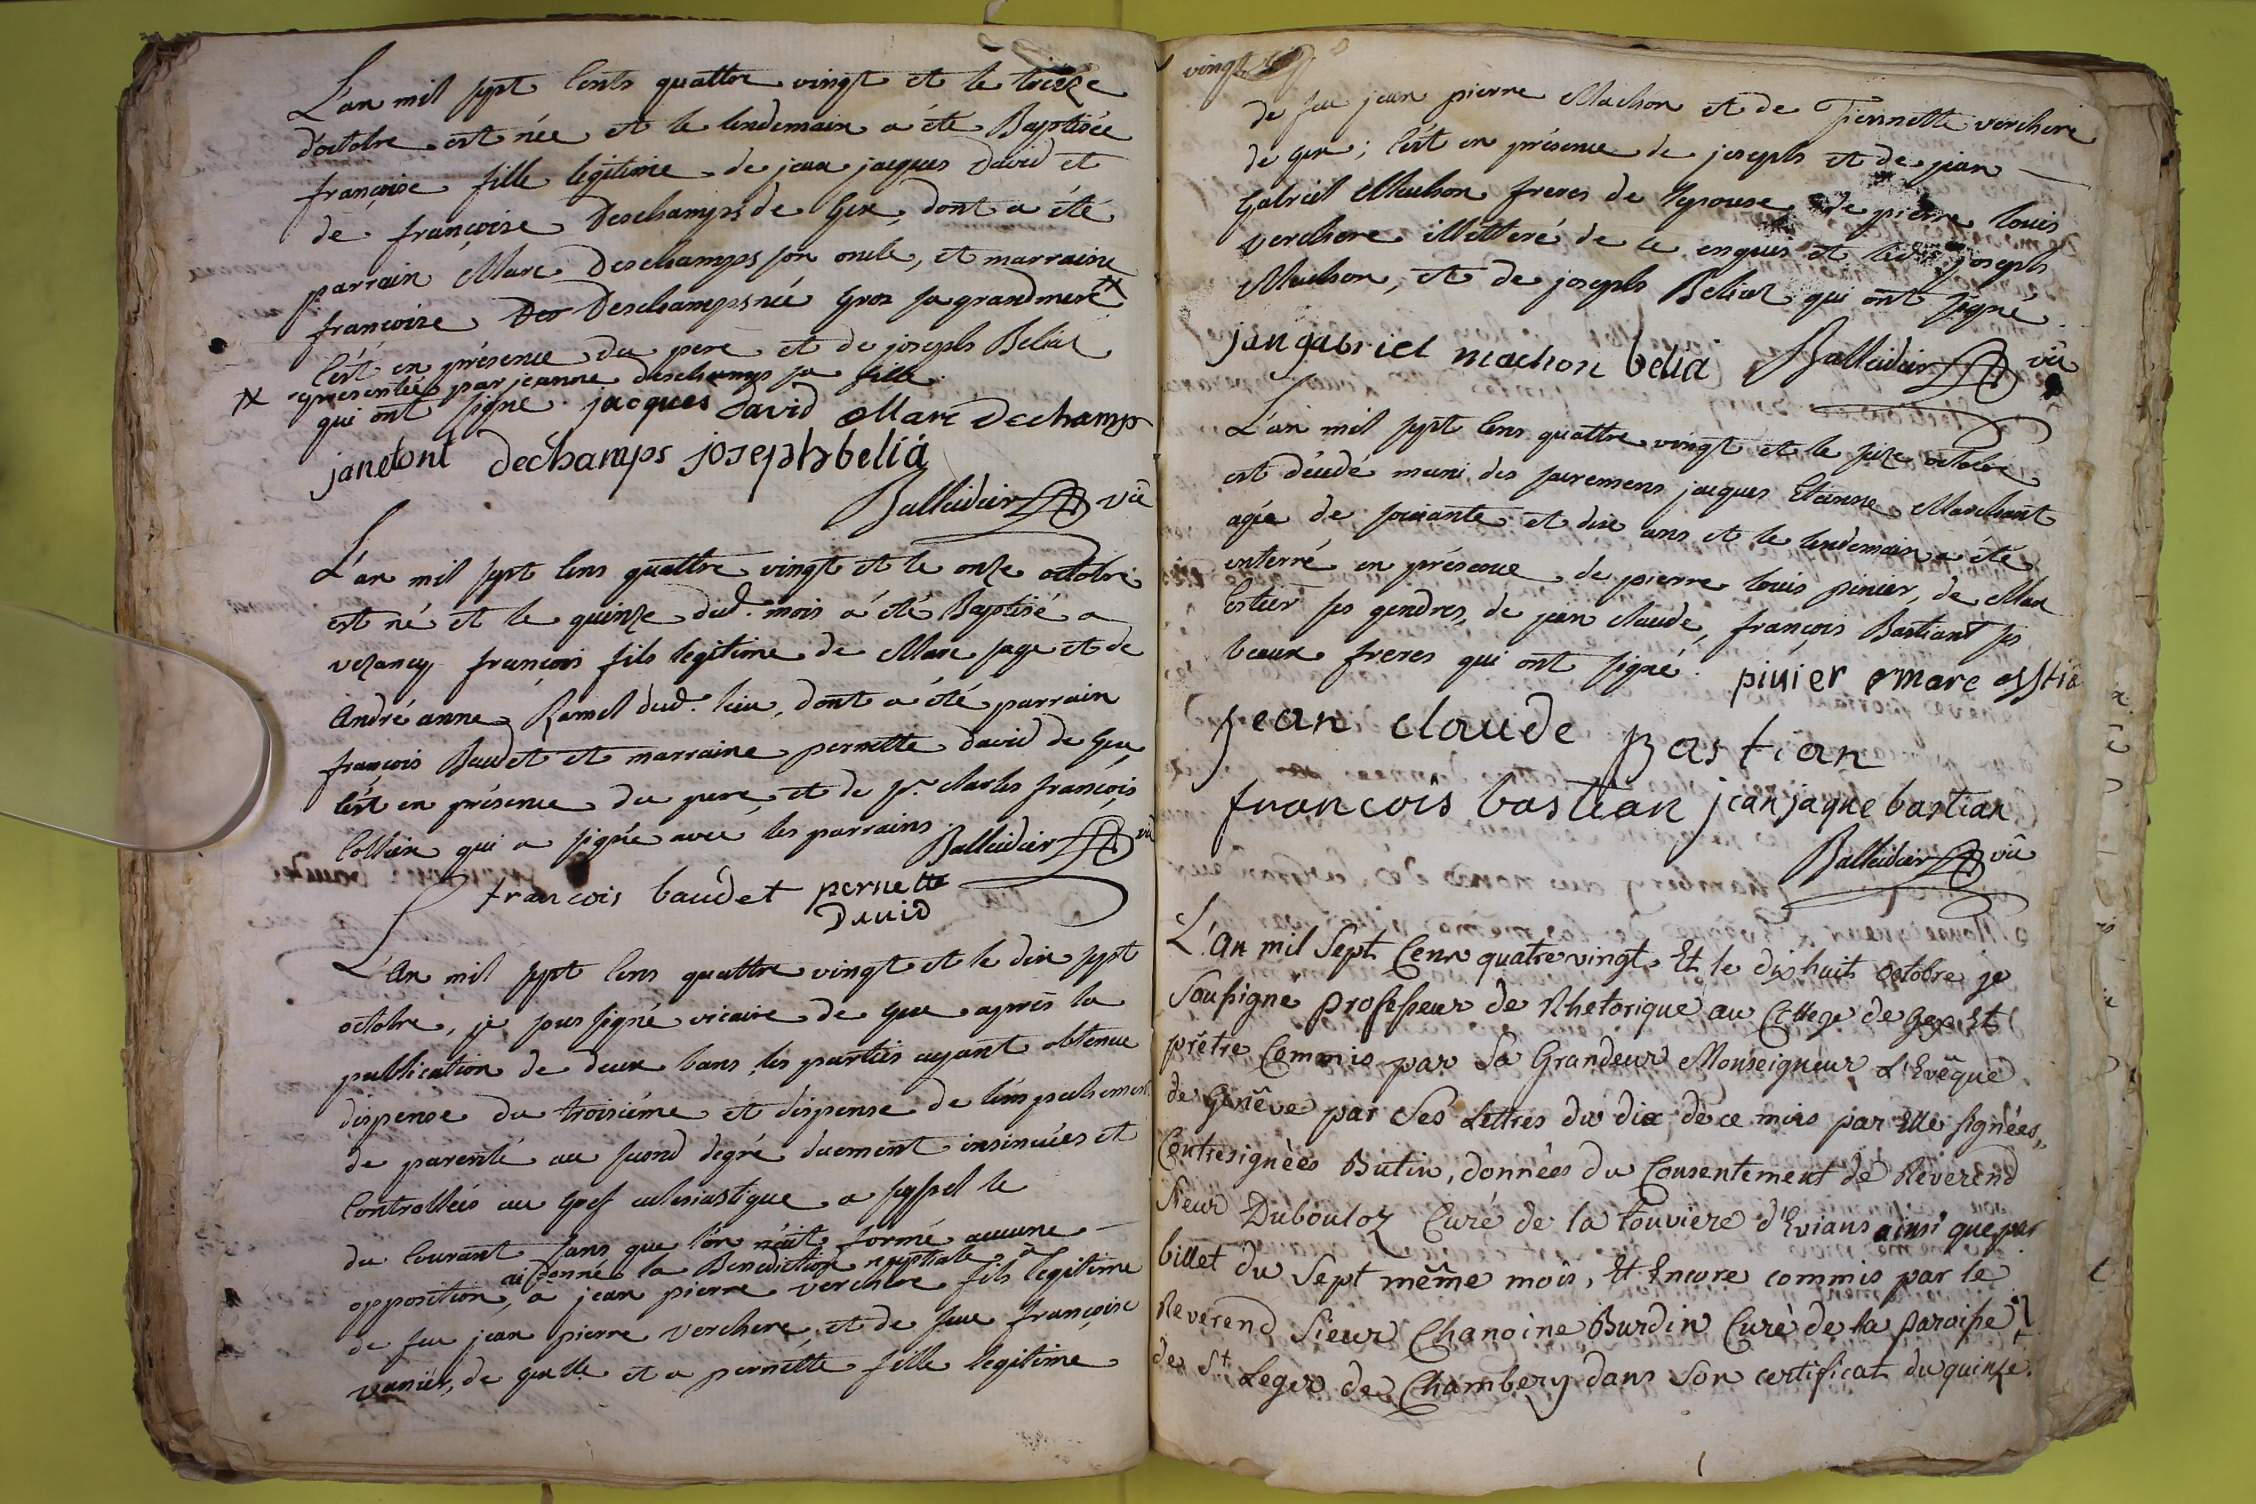 L'an mil sept Cents quattre vingt et le trieze
d'octobre est née et le lendemain a été Baptisée
françoise fille legitime de jean jacques David et
de françoise Deschamps de Gex, dont a été
parrain Marc Deschamps son oncle, et marraine
françoise Des Deschamps née Gros sa grandmere #
C'est en présence du pere et de joseph Beliat
# representée par jeanne deschamps sa fille
qui ont signe. jacques david Marc Dechamps
janetont dechamps joseph belia
Balleidier vû
L'an mil sept Cens quattre vingt et le onze octobre
est né et le quinze dud. mois a été Baptisé a
vezancy françois fils legitime de Marc sage et de
André anne Ramel dud. lieu, dont a été parrain
françois Baudet et marraine pernette david de Gex
C'est en présence du pere, et de Sr. charles françois
Collien qui a signée avec les parrains. Balleidier vû
francois baudet pernette
David
L'an mil sept Cens quattre vingt et le dix sept
octobre, je sous signé vicaire de Gex après la
publication de deux bans les parties ayant obtenue
dispense du troisiéme et dispense de l'empechement
de parenté au second degré duement insinuées et
Controllées au Gref eclesiastique a le
du Courant sans que l'on n'ait formé aucune
ai donné la Benediction nuptiale
opposition, a jean pierre verchere fils legitime
de feu jean pierre verchere, et de feue françoise
vanier, de et a pernette fille legitime
vingt
de feu jean pierre Machon et de Tiennette verchere
de Gex; C'est en présence de joseph et de jean
Gabriel Machon freres de l'epouse de pierre louis
verchere illetteré de ce enquis et led. joseph
Machon, et de joseph Beliat qui ont signé
jan gabriel machon belia Balleidier vû
L'an mil sept Cens quattre vingt et le size octobre
est décédé muni des sacremens jacques Etienne Marchant
agée de soixante et dix ans et le lendemain a été
enterré en présence de pierre louis pinier, de Marc
Estier ses gendres, de jean claude, françois Bastiant ses
beaux freres qui ont signé. pinier marc asstié
jean claude Bastian
francois bastian jean jaque bastian
Balleidier vû
L'An mil Sept Cens quatre vingt Et le dix huit octobre je
Soussigné professeur de Rhetorique au College de Gex Et
prêtre Commis par Sa Grandeur Monseigneur L'Evêque
de Genêve par Ses Lettres du dix de ce mois par Elle signées,
Contresignées Butin, données du Consentement de Reverend
Sieur Dubouloz Curé de la Touviere d'Evians ainsi que par
billet du Sept même mois, Et Encore commis par le
Reverend Sieur Chanoine Burdin Curé de la paroisse
de St. Leger de Chambery dans Son certificat du quinze.